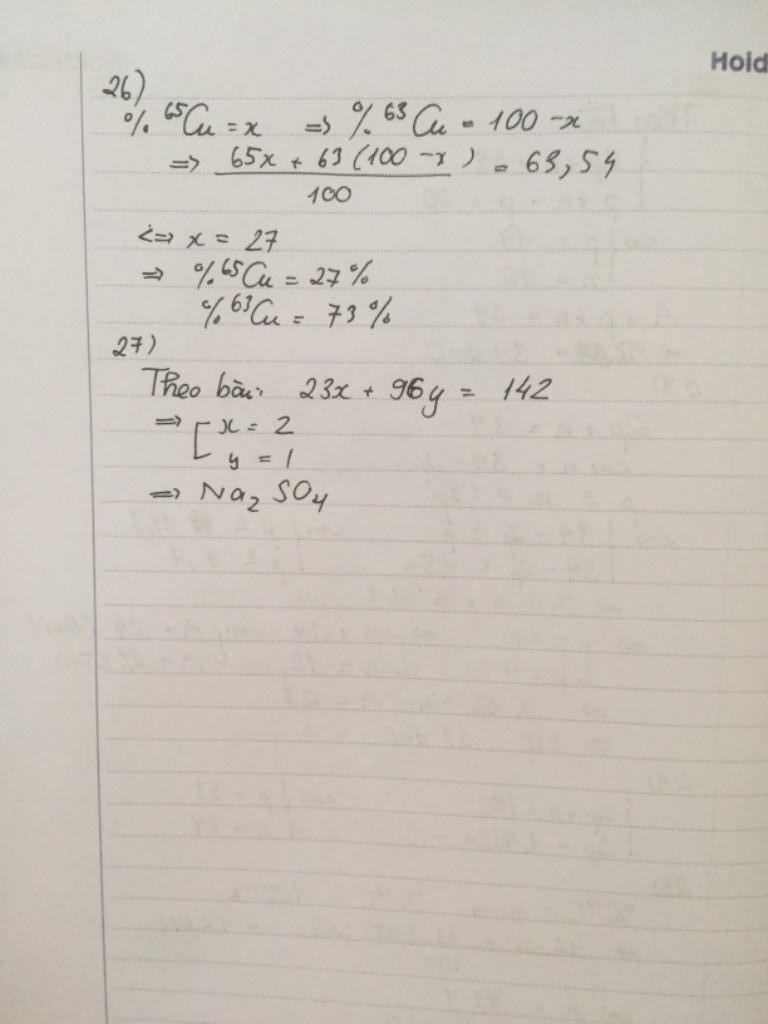 Hold
26)
% ⁶⁵Cu = x ⇒ % ⁶³Cu = 100 - x
⇒ (65x + 63(100 - x))/100 = 63,54
<=> x = 27
⇒ % ⁶⁵Cu = 27%
% ⁶³Cu = 73%
27)
Theo bài: 23x + 96y = 142
⇒ [ x = 2
y = 1
⇒ Na₂SO₄